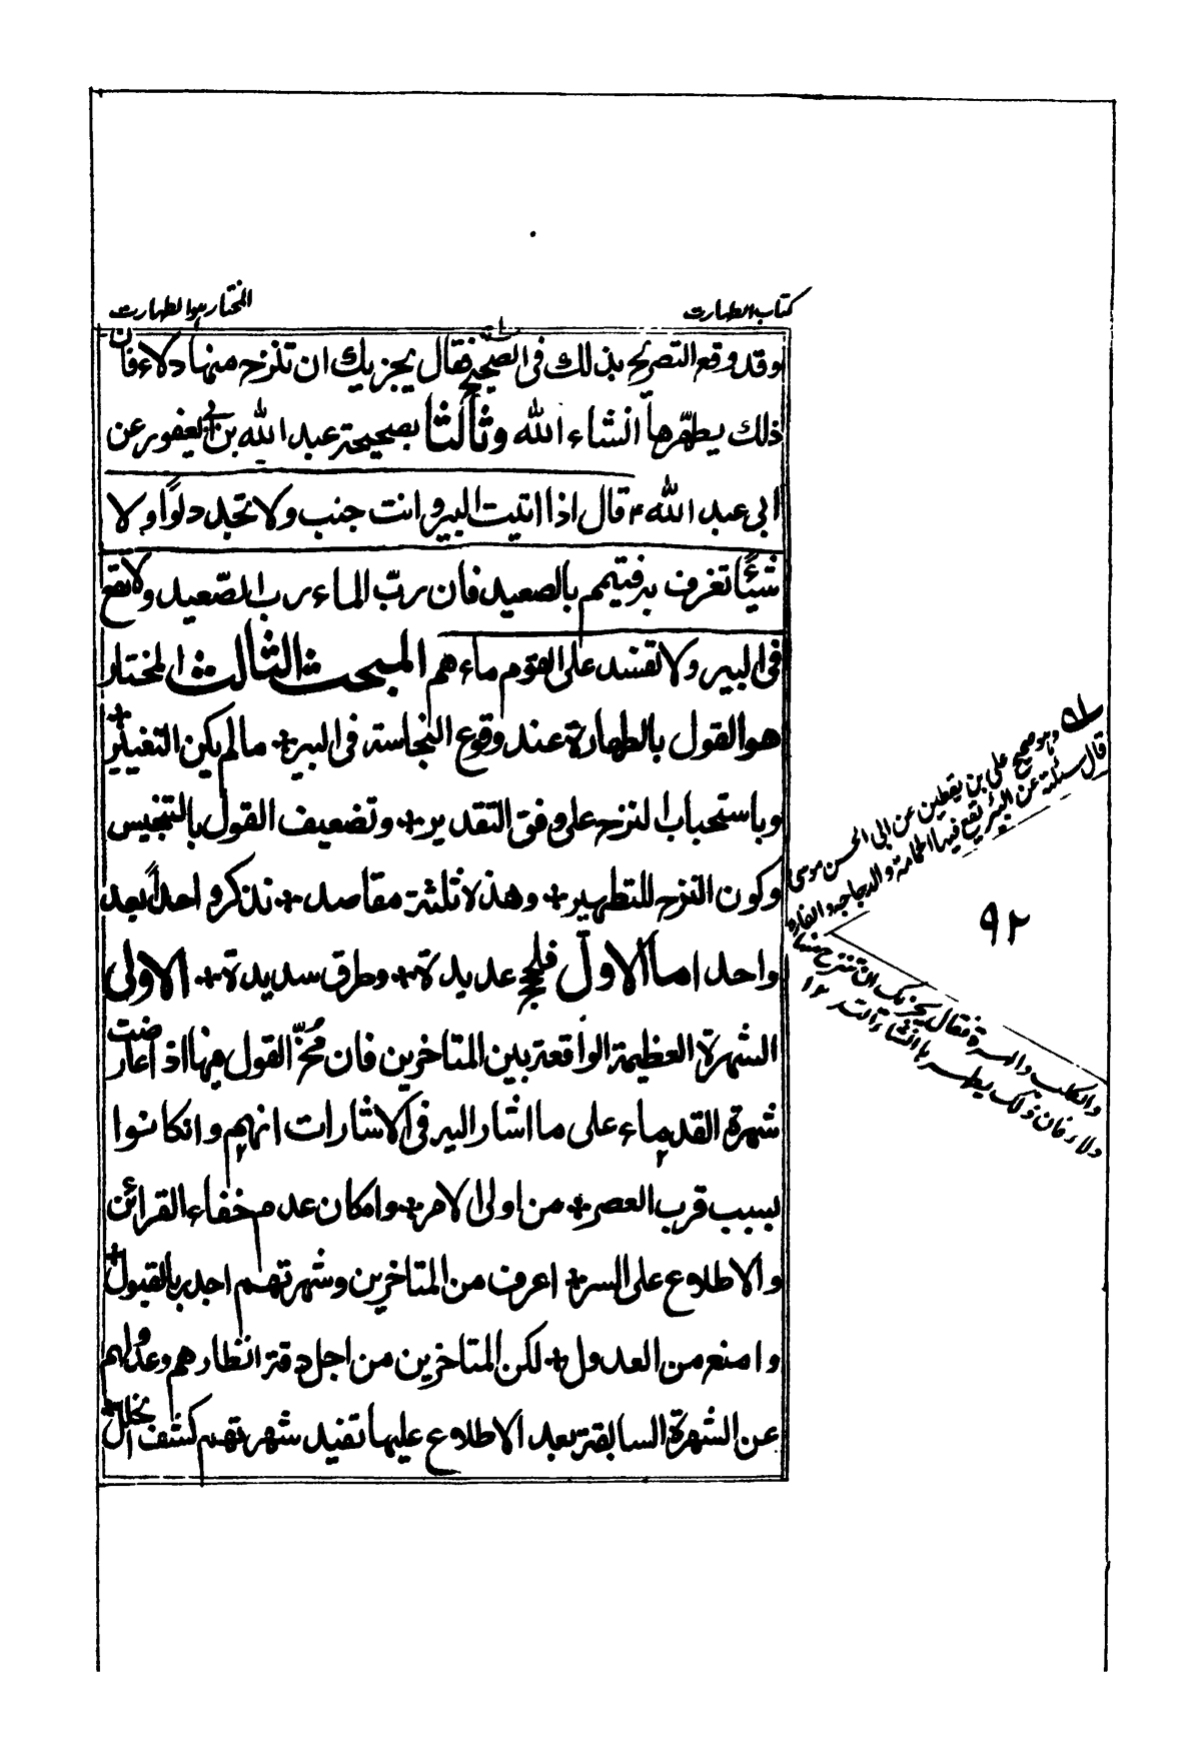 كتاب الطهارت
المختار هو الطهارت
وقد وقع التصريح بذلك فى الصحيح فقال يجزيك ان تنزح منها دلاء فان
ذلك يطهّرها انشاء الله وثالثا بصحيحة عبد الله بن ابى يعفور عن
ابى عبد الله ع قال اذا اتيت البير وانت جنب ولا تجد دلوًا ولا
شيئًا تغرف به فتيمم بالصعيد فان ربّ الماء رب الصّعيد ولا تقع
فى البير ولا تفسد على القوم ماءهم المبحث الثالث المختار
هو القول بالطهارة عند وقوع النجاسة فى البير + مالم يكن التغيير +
وباستحباب النزح على وفق التقدير + وتضعيف القول بالتنجيس
وكون النزح للتطهير + وهذه ثلثة مقاصد + نذكر واحداً بعد
واحد اما الاول فلحجج عديدة + وطرق سديدة + الاولى
الشهرة العظيمة الواقعة بين المتاخرين فان القول فيها اذ اعارضت
شهرة القدماء على ما اشار اليه فى الاشارات انهم وانكانوا
بسبب قرب العصر + من اولى الامر + وامكان عدم خفاء القرائن
والاطلاع على السر + اعرف من المتاخرين وشهرتهم اجدر بالقبول +
وامنع من العدول + لكن المتاخرين من اجل دقة انظارهم وعدولهم
عن الشهرة السابقة بعد الاطلاع عليها تفيد شهرتهم كشف الخلل +
وهو صحيح على بن يقطين عن ابى الحسن موسى
قال سئلته عن البئر يقع فيها الحمامة والدجاجة والفارة
والكلب والهرة فقال يجزيك ان تنزح منها
دلاء فان ذلك يطهرها انشاء الله ١٢
٩٢